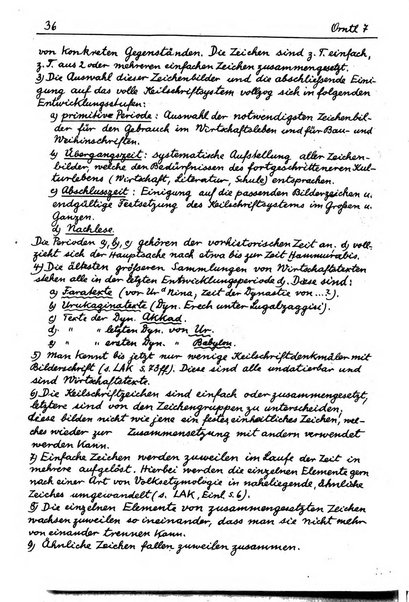 36 Orntl 7
von konkreten Gegenständen. Die Zeichen sind z. T. einfach,
z. T. aus 2 oder mehreren einfachen Zeichen zusammengesetzt.
3) Die Auswahl dieser Zeichenbilder und die abschließende Eini-
gung auf das volle Keilschriftsystem vollzog sich in folgenden
Entwicklungsstufen:
a) primitive Periode: Auswahl der notwendigsten Zeichenbil-
der für den Gebrauch im Wirtschaftsleben und für Bau- und
Weihinschriften.
b) Übergangszeit: systematische Aufstellung aller Zeichen-
bilder, welche den Bedürfnissen des fortgeschritteneren Kul-
turlebens (Wirtschaft, Literatur, Schule) entsprachen.
c) Abschlusszeit: Einigung auf die passenden Bilderzeichen u.
endgültige Festsetzung des Keilschriftsystems im Großen u.
Ganzen.
d) Nachlese.
Die Perioden a, b, c, gehören der vorhistorischen Zeit an. d) voll-
zieht sich der Hauptsache nach etwa bis zur Zeit Hammurabis.
4) Die ältesten größeren Sammlungen von Wirtschaftstexten
stehen alle in der letzten Entwicklungsperiode d. Diese sind:
a) Faratexte (vor Ur-Nina, Zeit der Dynastie von ...?).
b) Urukaginatexte (Dyn. Erech unter Lugalzaggisi).
c) Texte der Dyn. Akkad.
d) " " letzten Dyn. von Ur.
e) " " ersten Dyn. " Babylon.
5) Man kennt bis jetzt nur wenige Keilschriftdenkmäler mit
Bilderschrift (s. LAK S. 73ff). Diese sind alle undatierbar und
sind Wirtschaftstexte.
6) Die Keilschriftzeichen sind einfach oder zusammengesetzt,
letztere sind von den Zeichengruppen zu unterscheiden,
diese bilden nicht wie jene ein festes einheitliches Zeichen, wel-
ches wieder zur Zusammensetzung mit andern verwendet
werden kann.
7) Einfache Zeichen werden zuweilen im Laufe der Zeit in
mehrere aufgelöst. Hierbei werden die einzelnen Elemente gern
nach einer Art von Volksetymologie in naheliegende, ähnliche
Zeichen umgewandelt (s. LAK, Einl. S. 6).
8) Die einzelnen Elemente von zusammengesetzten Zeichen
wachsen zuweilen so ineinander, dass man sie nicht mehr
von einander trennen kann.
9) Ähnliche Zeichen fallen zuweilen zusammen.